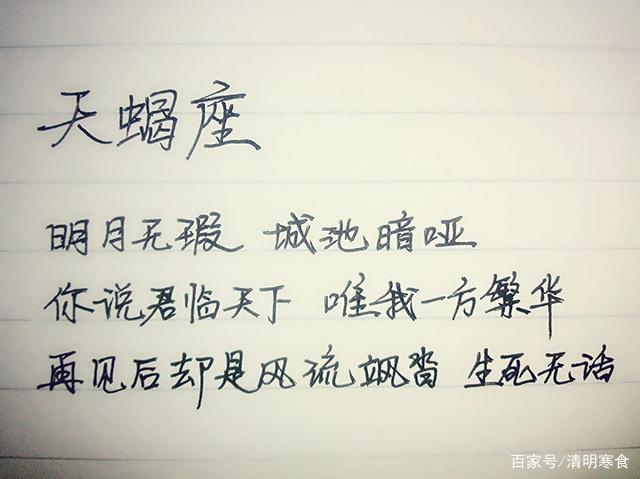 天蝎座
明月无瑕 城池暗哑
你说君临天下 唯我一方繁华
再见后却是风流飒沓 生死无话
百家号/清明寒食